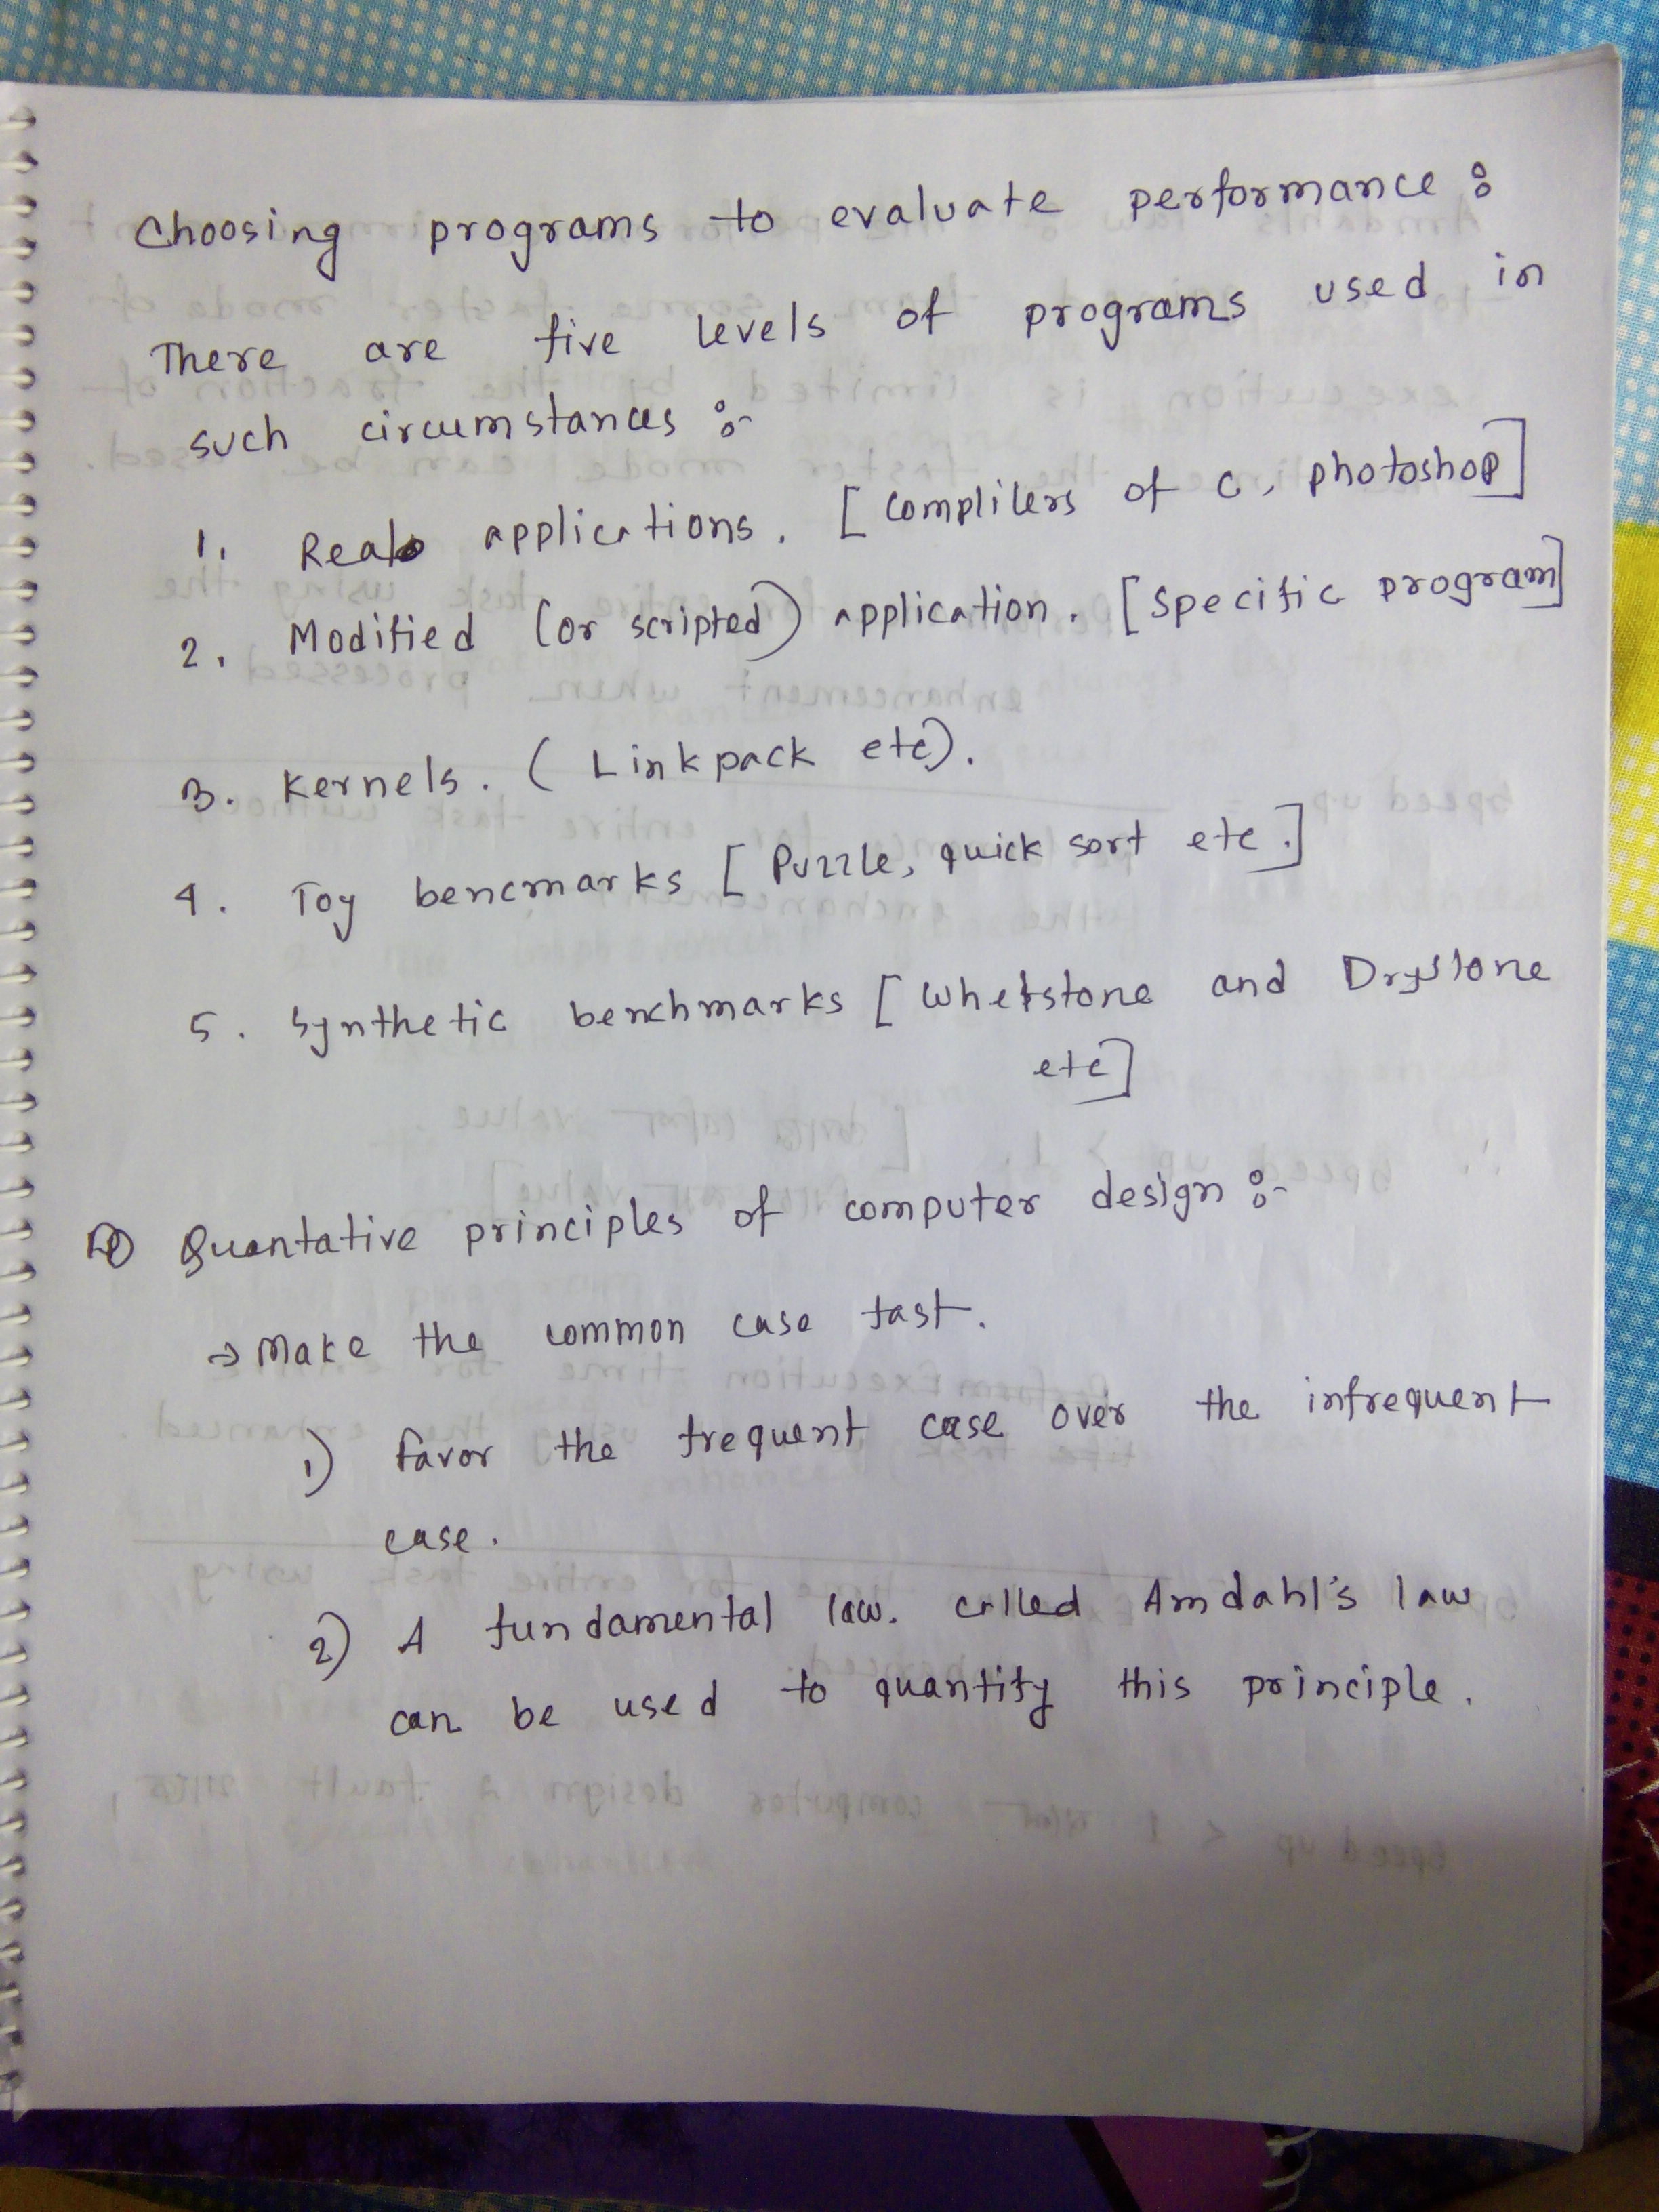 Choosing programs to evaluate performance :
There are five levels of programs used in
such circumstances :-
1. Real applications. [Complilers of C, photoshop]
2. Modified (or scripted) application. [specific program]
3. Kernels. ( Linkpack etc).
4. Toy bencmarks [ Puzzle, quick sort etc.]
5. Synthetic benchmarks [ Whetstone and Drystone
etc]
Quantative principles of computer design :-
→ Make the common case fast.
1) favor the frequent case over the infrequent
case.
2) A fundamental law. called Amdahl's law
can be used to quantify this principle.